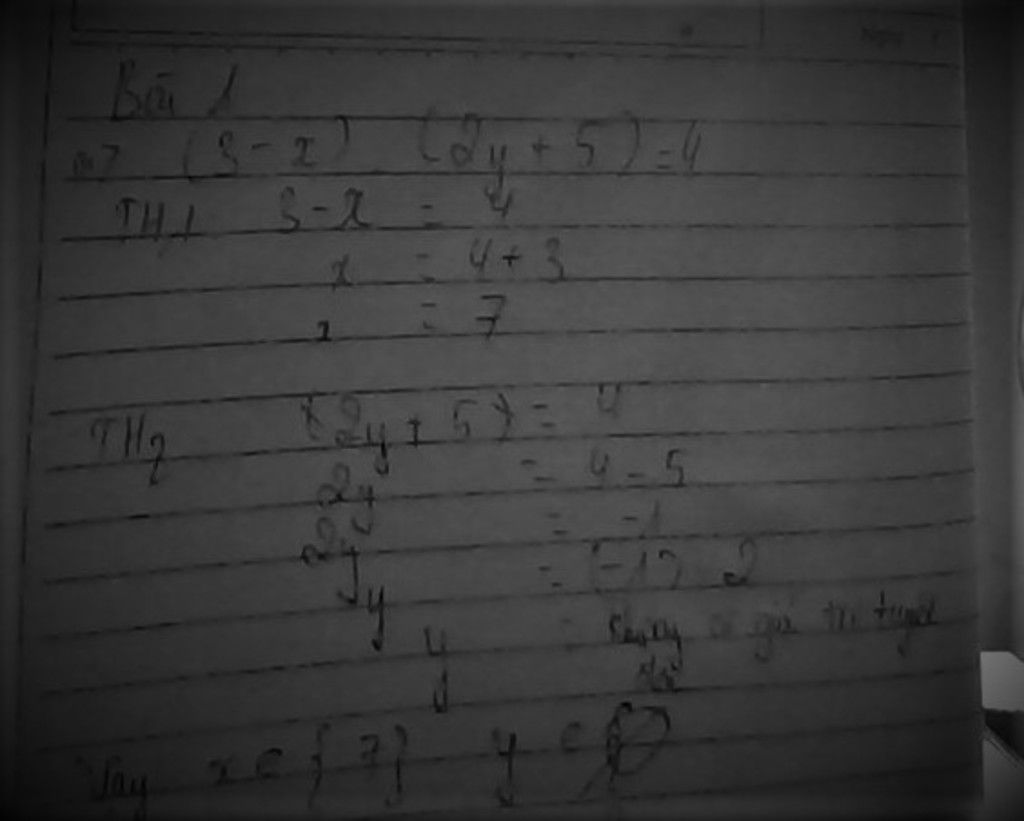 Bài 1
(3 - x) (2y + 5) = 4
TH1 3 - x = 4
x = 4 + 3
x = 7
TH2 (2y + 5) = 4
2y = 4 - 5
2y = -1
y = (-1) 2
y = không có giá trị tuyệt
Vậy x ∈ {7} y ∈